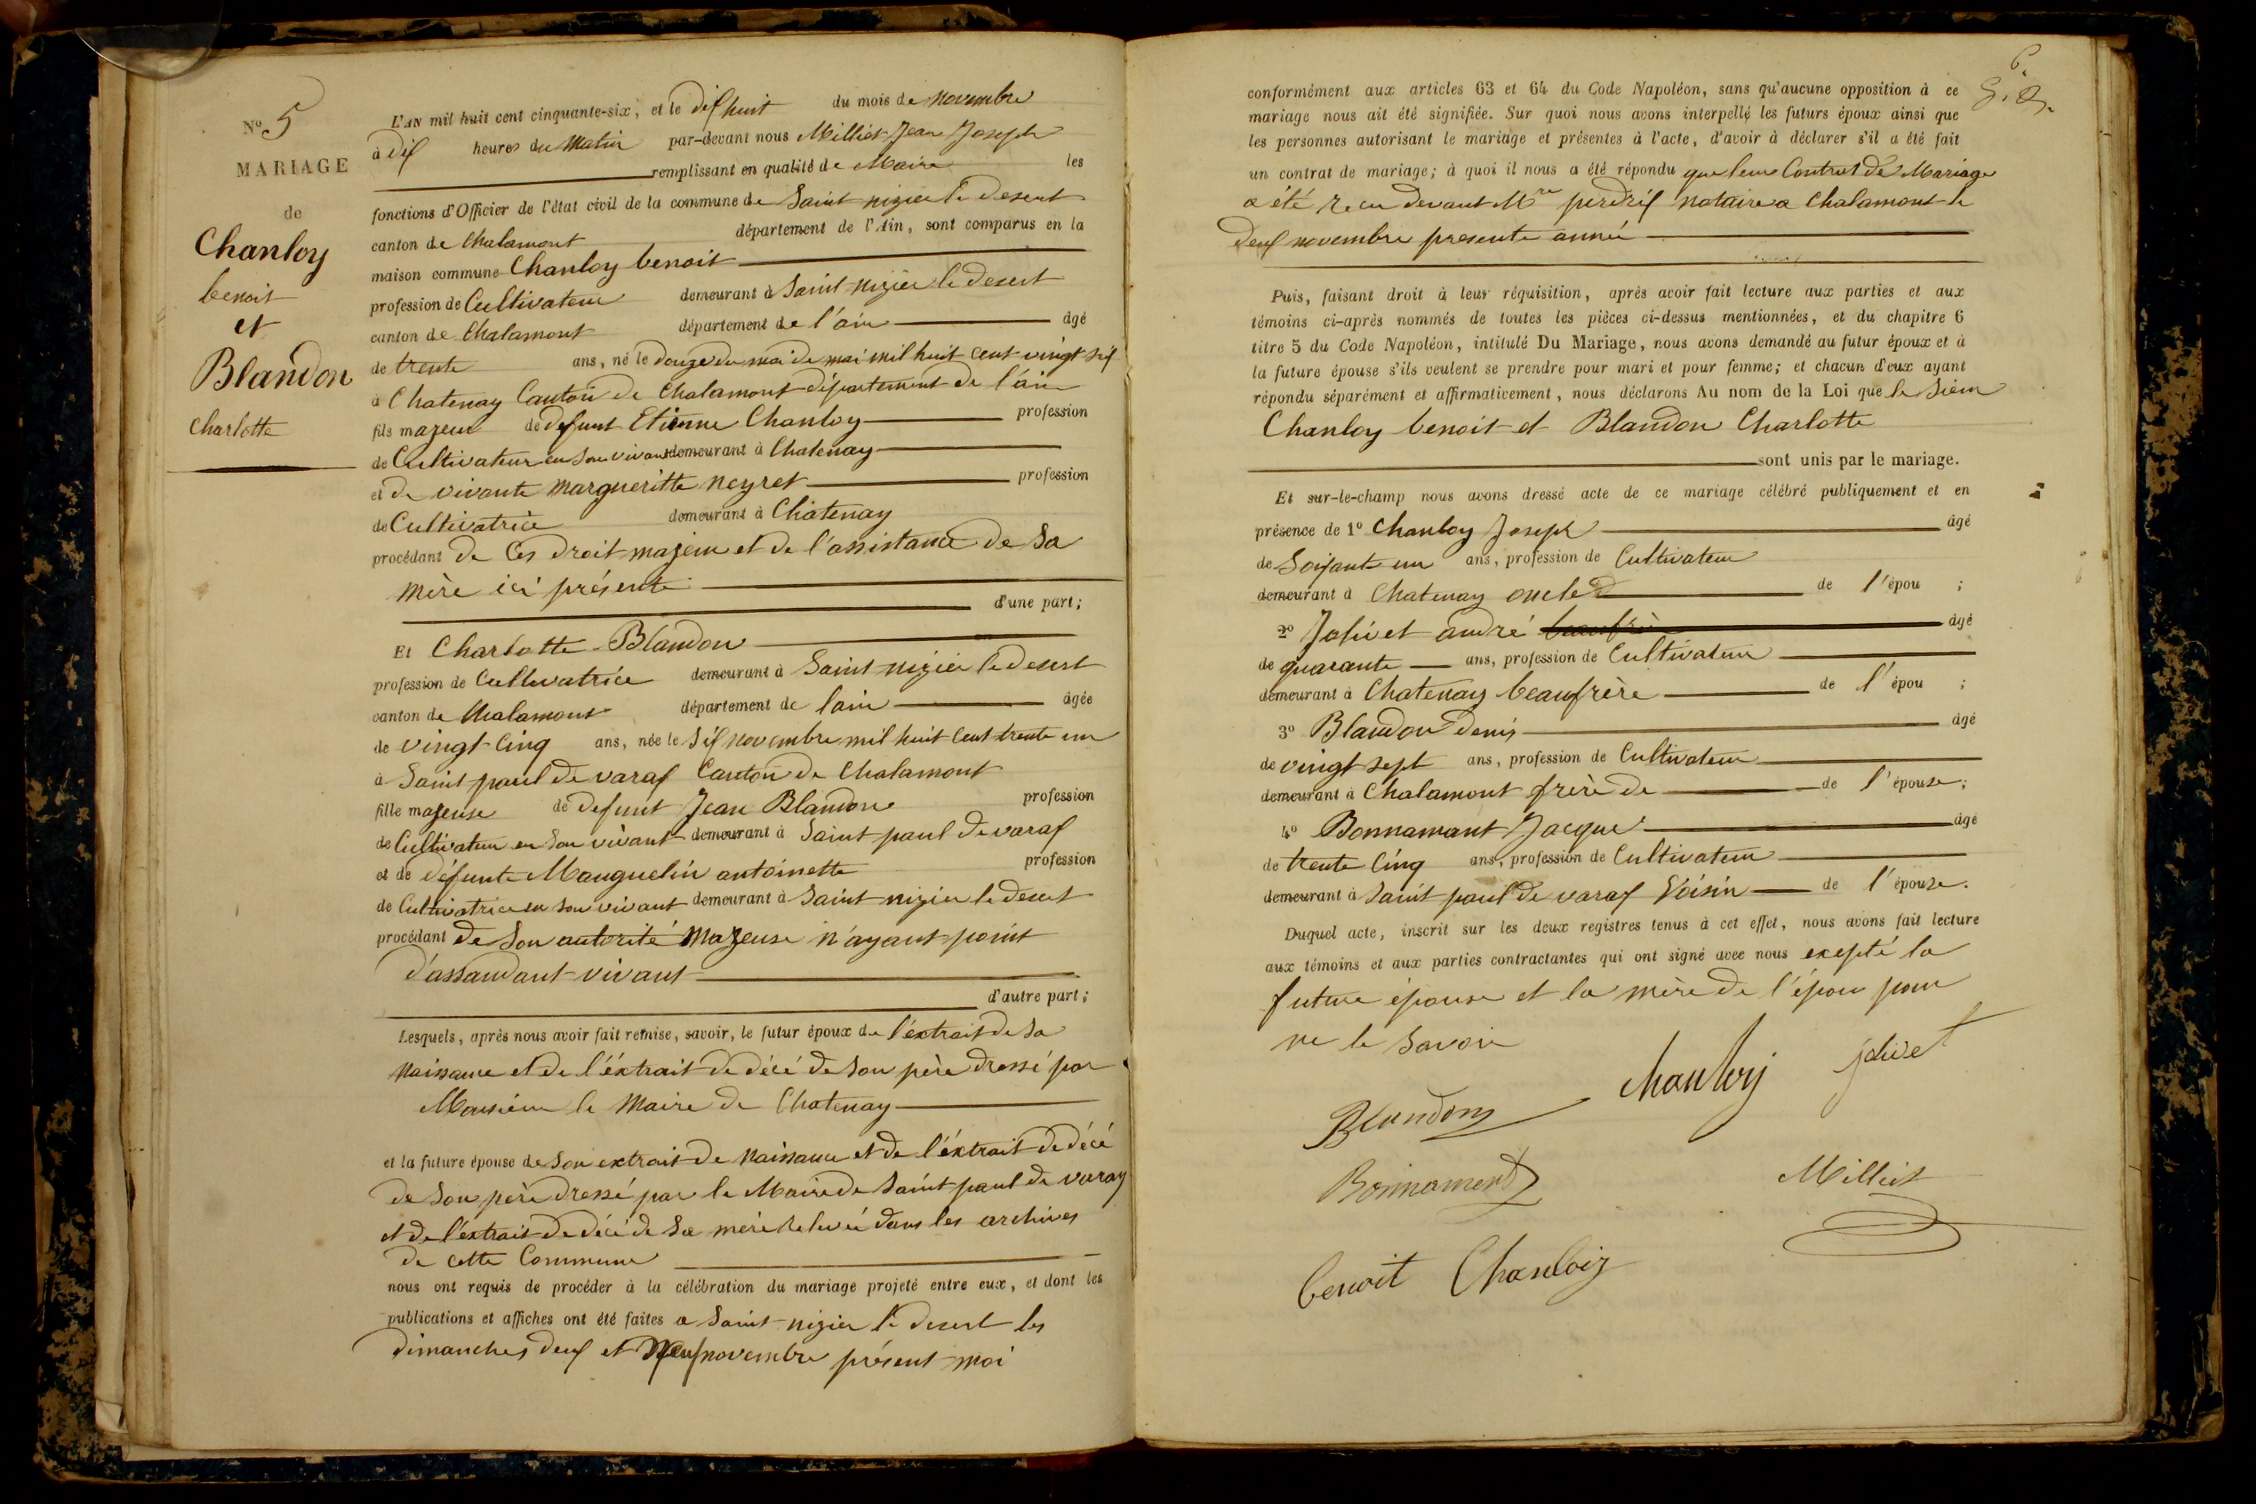 N° 5
MARIAGE
de
Chanloy
benoit
et
Blandon
Charlotte
L'AN mil huit cent cinquante-six, et le dix huit du mois de novembre
à dix heures du Matin par-devant nous Milliet Jean Joseph
remplissant en qualité de Maire les
fonctions d'Officier de l'état civil de la commune de Saint nizier le desert
canton de Chalamont département de l'Ain, sont comparus en la
maison commune Chanloy benoit
profession de Cultivateur demeurant à Saint nizier le desert
canton de Chalamont département de l'ain âgé
de trente ans, né le douze du moi de mai mil huit cent vingt six
à Chatenay Canton de Chalamont département de l'ain
fils majeur de defunt Etienne Chanloy profession
de Cultivateur en son vivant demeurant à Chatenay
et de vivante margueritte neyret profession
de Cultivatrice demeurant à Chatenay
procédant de Ces droit majeur et de l'assistance de Sa
mère ici présente
d'une part;
Et Charlotte Blandon
profession de Cultivatrice demeurant à Saint nizier le desert
canton de Chalamont département de lain âgée
de vingt-cinq ans, née le Six novembre mil huit cent trente un
à Saint paul de varax Canton de Chalamont
fille majeuse de defunt Jean Blandon profession
de Cultivateur en son vivant demeurant à Saint paul de varax
et de défunte Mauguelin antoinette profession
de Cultivatrice en son vivant demeurant à Saint nizier le desert
procédant de Son autorité majeuse n'ayant point
d'assandant vivant
d'autre part;
Lesquels, après nous avoir fait remise, savoir, le futur époux de l'éxtrait de Sa
naissance et de l'éxtrait de décé de Son père dressé par
Monsieur le Maire de Chatenay
et la future épouse de Son extrait de naissance et de l'éxtrait de décé
de Son père dressé par le Maire de Saint paul de varax
et de l'éxtrait de décé de Sa mère relevé dans les archives
de cette Commune
nous ont requis de procéder à la célébration du mariage projeté entre eux, et dont les
publications et affiches ont été faites a Saint nizier le desert les
dimanches deux et neuf novembre présent moi
6.
conformément aux articles 63 et 64 du Code Napoléon, sans qu'aucune opposition à ce
mariage nous ait été signifiée. Sur quoi nous avons interpellé les futurs époux ainsi que
les personnes autorisant le mariage et présentes à l'acte, d'avoir à déclarer s'il a été fait
un contrat de mariage; à quoi il nous a été répondu que leur Contrat de Mariage
a été recu devant Mre perdrix notaire a Chalamont le
deux novembre presente année
Puis, faisant droit à leur réquisition, après avoir fait lecture aux parties et aux
témoins ci-après nommés de toutes les pièces ci-dessus mentionnées, et du chapitre 6
titre 5 du Code Napoléon, intitulé Du Mariage, nous avons demandé au futur époux et à
la future épouse s'ils veulent se prendre pour mari et pour femme; et chacun d'eux ayant
répondu séparément et affirmativement, nous déclarons Au nom de la Loi que le Sieur
Chanloy benoit et Blandon Charlotte
sont unis par le mariage.
Et sur-le-champ nous avons dressé acte de ce mariage célébré publiquement et en
présence de 1° Chanloy Joseph âgé
de Soixante un ans, profession de Cultivateur
demeurant à Chatenay oncle de l'épou ;
2° Jolivet andré beaufrè âgé
de quarante ans, profession de Cultivateur
demeurant à Chatenay beaufrère de l'épou ;
3° Blandon denis âgé
de vingt sept ans, profession de Cultivateur
demeurant à Chalamont frère de de l'épouse;
4° Bonnamant Jacque âgé
de trente Cinq ans, profession de Cultivateur
demeurant à Saint paul de varax Voisin de l'épouse.
Duquel acte, inscrit sur les deux registres tenus à cet effet, nous avons fait lecture
aux témoins et aux parties contractantes qui ont signé avec nous exepté la
future épouse et la mère de l'épou pour
ne le Savoir
Chanloy jolivet
Blandon
Bonnament Milliet
benoit Chanloiy